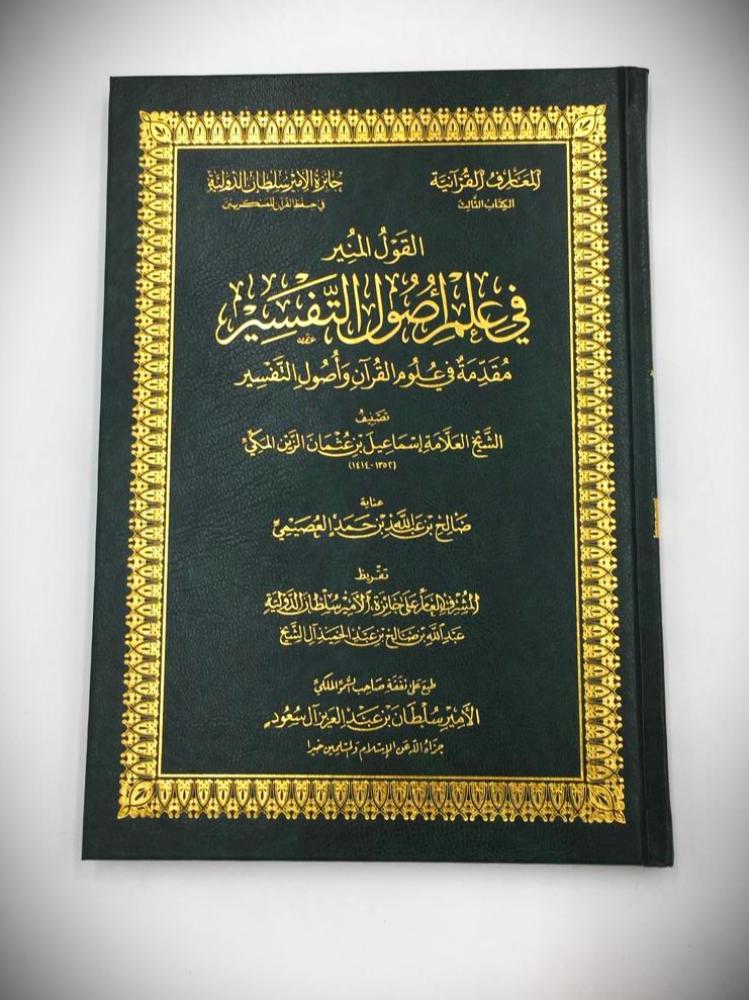 المعارف القرآنية
الكتاب الثالث
جائزة الأمير سلطان الدولية
في حفظ القرآن للعسكريين
القَوْلُ المُنِير
في عِلْمِ أُصُولِ التَّفْسِيرِ
مُقَدِّمَةٌ في عُلُومِ القُرآنِ وَأُصُولِ التَّفْسِيرِ
تصنيف
الشَّيْخِ العَلَّامَةِ إسْمَاعِيلَ بْنِ عُثْمَانَ الزَّيْنِ المَكِّيِّ
(١٣٥٢-١٤١٤)
عناية
صَالِحِ بْنِ عَبْدِ اللهِ بْنِ حَمَدٍ العُصَيْمِيِّ
تقريظ
المشرف العام على جائزة الأمير سلطان الدولية
عبد الله بن صالح بن عبد الحميد آل الشيخ
طبع على نفقة صاحب السمو الملكي
الأمير سلطان بن عبد العزيز آل سعود
جزاه الله عن الإسلام والمسلمين خيرا